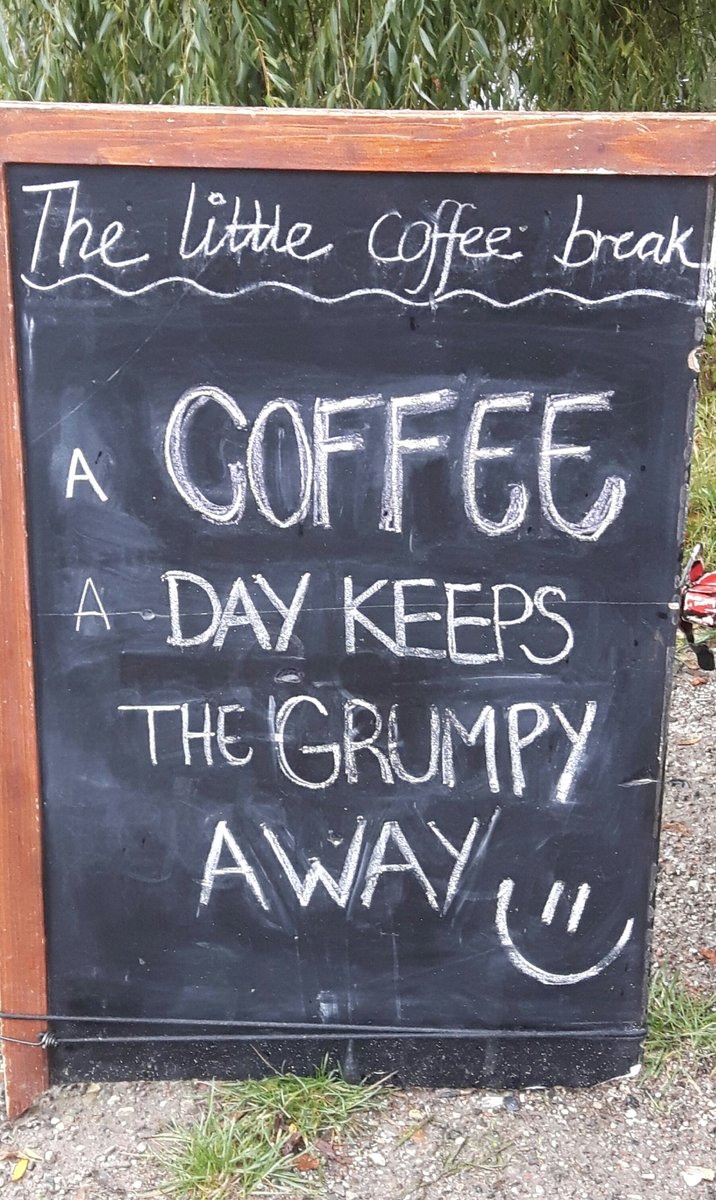 The little coffee break
A COFFEE
A DAY KEEPS
THE GRUMPY
AWAY